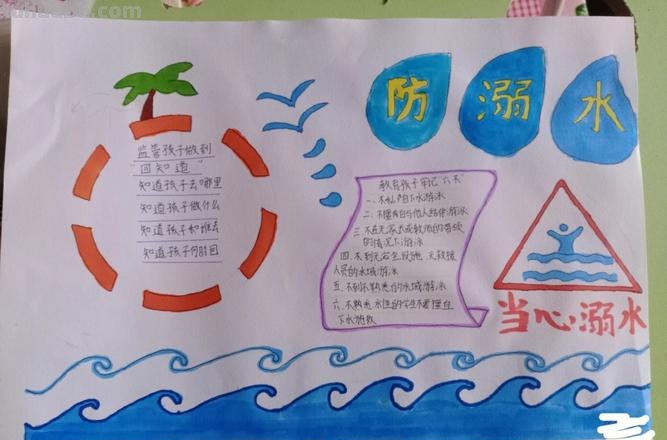 防溺水
监管孩子做到
"四知道"
知道孩子去哪里
知道孩子做什么
知道孩子和谁去
知道孩子何时回
教育孩子牢记"六不"
一、不私自下水游泳
二、不擅自与他人结伴游泳
三、不在无家长或教师的带领
的情况下游泳
四、不到无安全设施、无救援
人员的水域游泳
五、不到不熟悉的水域游泳
六、不熟悉水性的学生不要擅自
下水施救
当心溺水